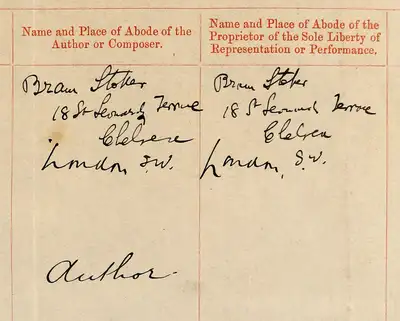 Name and Place of Abode of the
Author or Composer.
Bram Stoker
18 St Leonards Terrace
Chelsea
London, S.W.
Author.
Name and Place of Abode of the
Proprietor of the Sole Liberty of
Representation or Performance.
Bram Stoker
18 St Leonards Terrace
Chelsea
London, S.W.